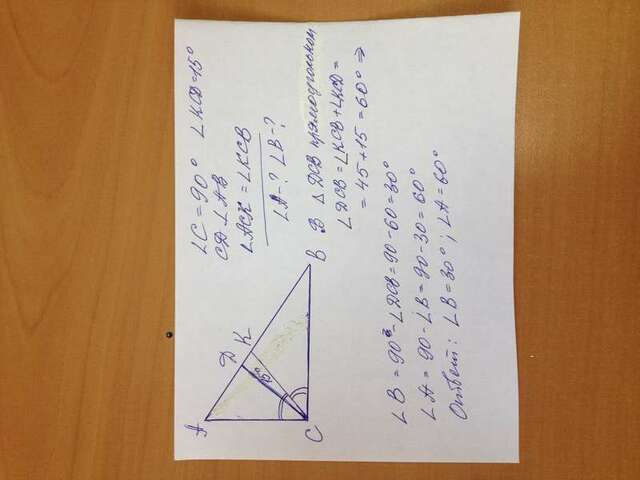 ∠C = 90° ∠KCD = 15°
CD ⊥ AB
∠ACK = ∠KCB
∠A - ? ∠B - ?
A
D
K
B
C
15°
В △ DCB прямоугольном
∠DCB = ∠KCB + ∠KCD =
= 45 + 15 = 60° ⇒
∠B = 90° - ∠DCB = 90 - 60 = 30°
∠A = 90 - ∠B = 90 - 30 = 60°
Ответ: ∠B = 30°; ∠A = 60°